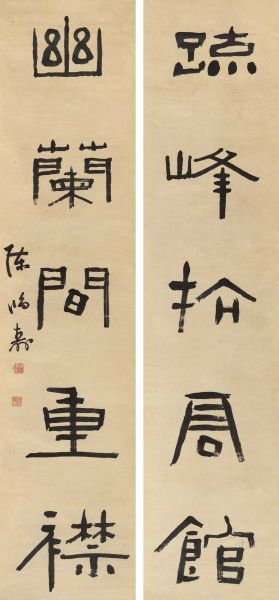 疏峰抗高館
幽蘭間重襟
陳鴻壽